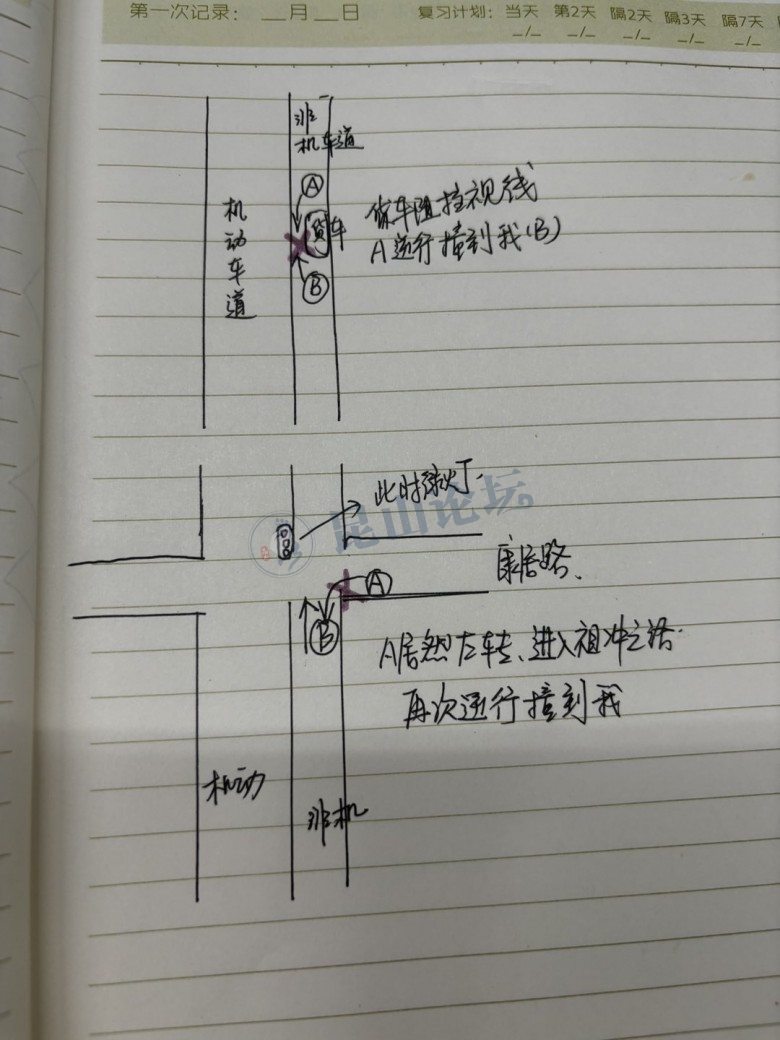 第一次记录: __月__日
复习计划: 当天 第2天 隔2天 隔3天 隔7天
_/_ _/_ _/_ _/_ _/_
非
机车道
A
机动车道
货车
B
货车阻挡视线
A逆行撞到我(B)
此时绿灯.
昆山论坛
康居路、
A
B
A居然左转、进入祖冲之路.
再次逆行撞到我
机动
非机